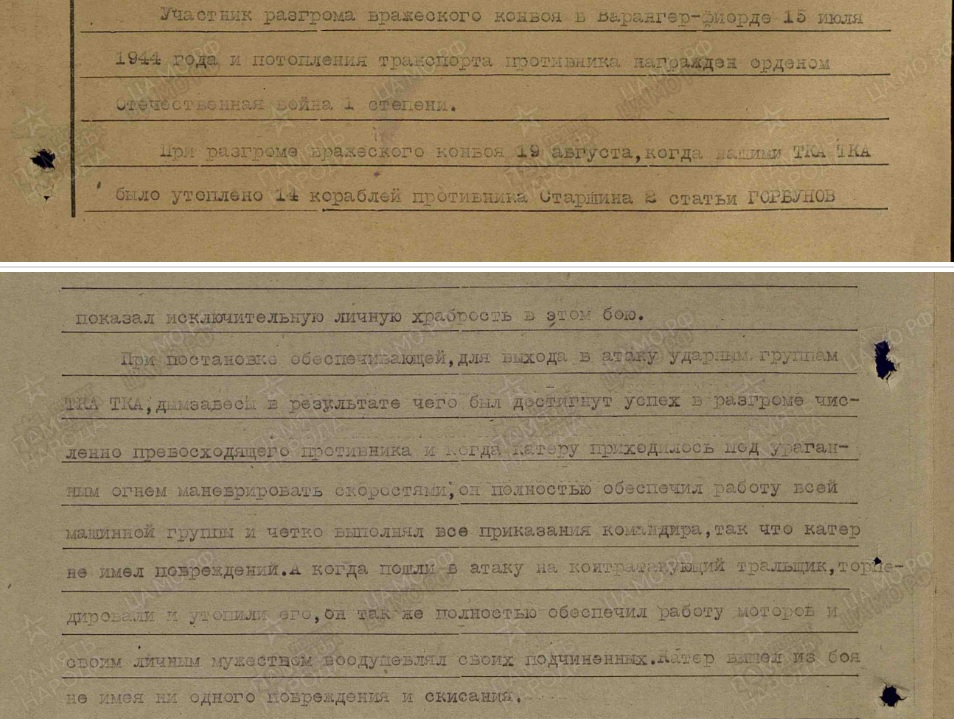 Участник разгрома вражеского конвоя в Варангер-фиорде 15 июля
1944 года и потопления транспорта противника награжден орденом
Отечественная война 1 степени.
При разгроме вражеского конвоя 19 августа,когда нашими ТКА ТКА
было утоплено 14 кораблей противника Старшина 2 статьи ГОРБУНОВ
показал исключительную личную храбрость в этом бою.
При постановке обеспечивающей,для выхода в атаку ударным группам
ТКА ТКА,дымзавесы в результате чего был достигнут успех в разгроме чис-
ленно превосходящего противника и когда катеру приходилось под ураган-
ным огнем маневрировать скоростями,он полностью обеспечил работу всей
машинной группы и четко выполнял все приказания командира,так что катер
не имел повреждений.А когда пошли в атаку на контратакующий тральщик,торпе-
дировали и утопили его,он так же полностью обеспечил работу моторов и
своим личным мужеством воодушевлял своих подчиненных.Катер вышел из боя
не имея ни одного повреждения и скисания.